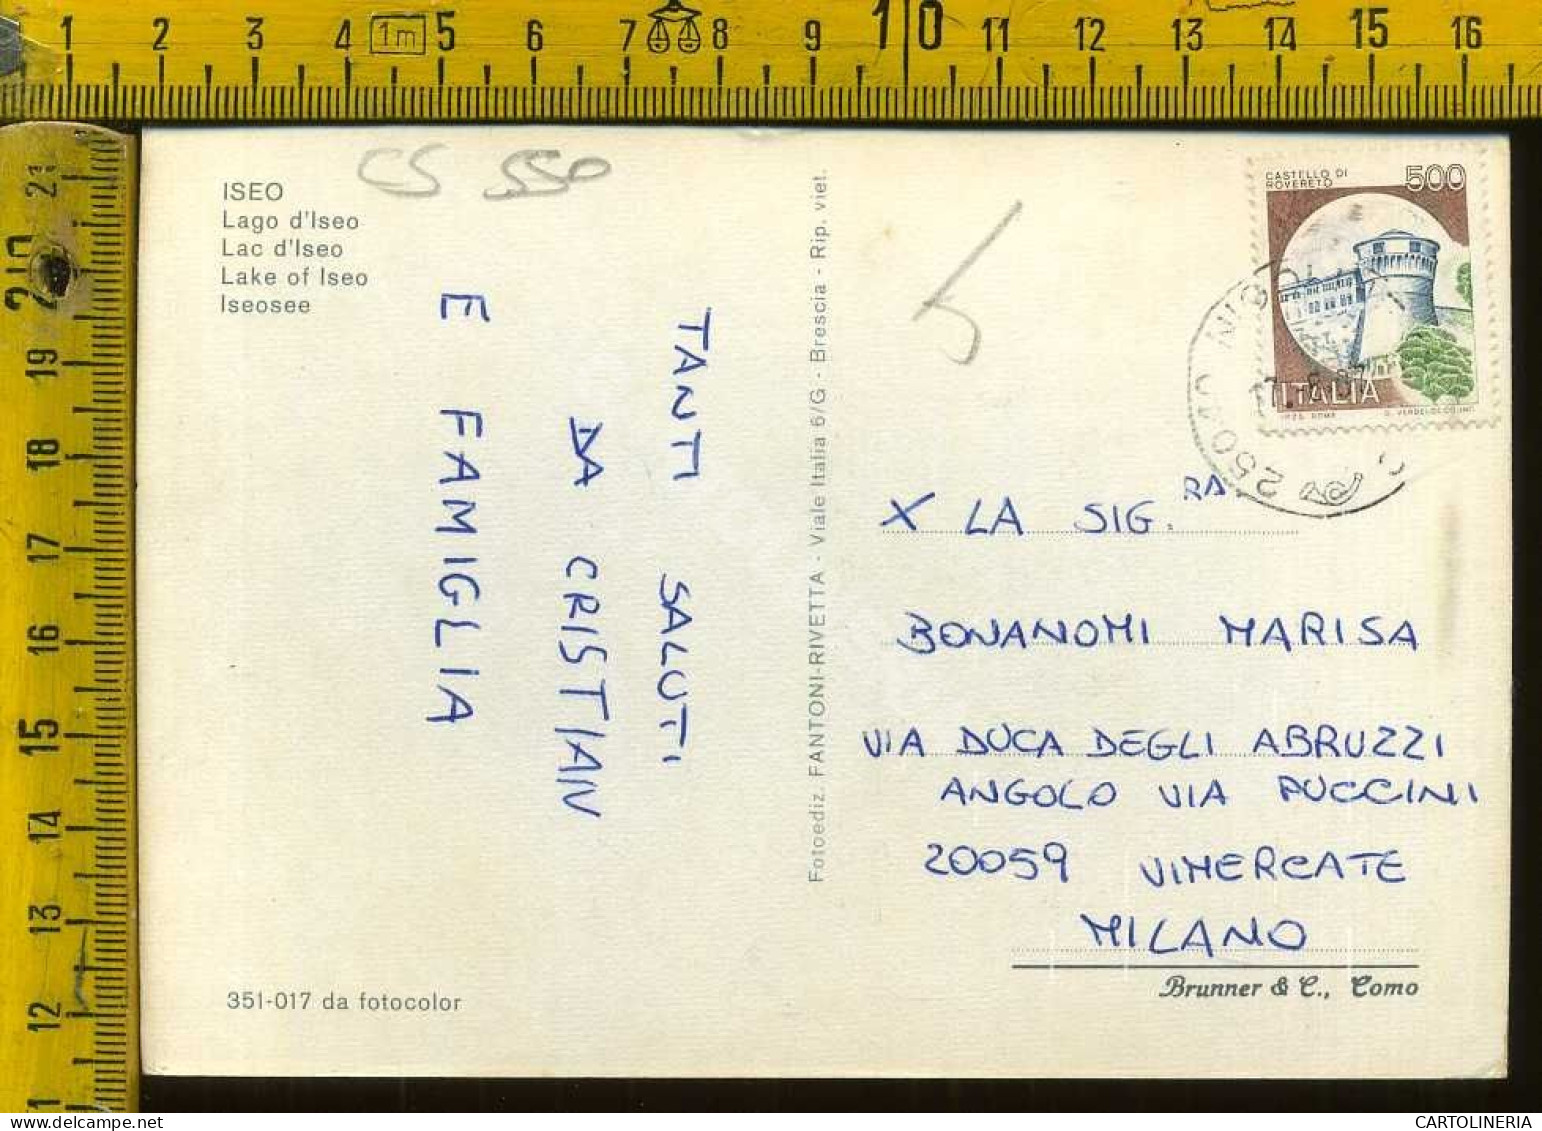 1 2 3 4 1m 5 6 7 8 9 10 11 12 13 14 15 16
21
20
19
18
17
16
15
14
13
12
11
CS 550
ISEO
Lago d'Iseo
Lac d'Iseo
Lake of Iseo
Iseosee
TANTI SALUTI
DA CRISTIAN
E FAMIGLIA
351-017 da fotocolor
Fotoediz. FANTONI-RIVETTA - Viale Italia 6/G - Brescia - Rip. viet.
5
CASTELLO DI
ROVERETO
500
ITALIA
25040
X LA SIG.RA
BONANOMI MARISA
VIA DUCA DEGLI ABRUZZI
ANGOLO VIA PUCCINI
20059 VIMERCATE
MILANO
Brunner & C., Como
CARTOLINERIA